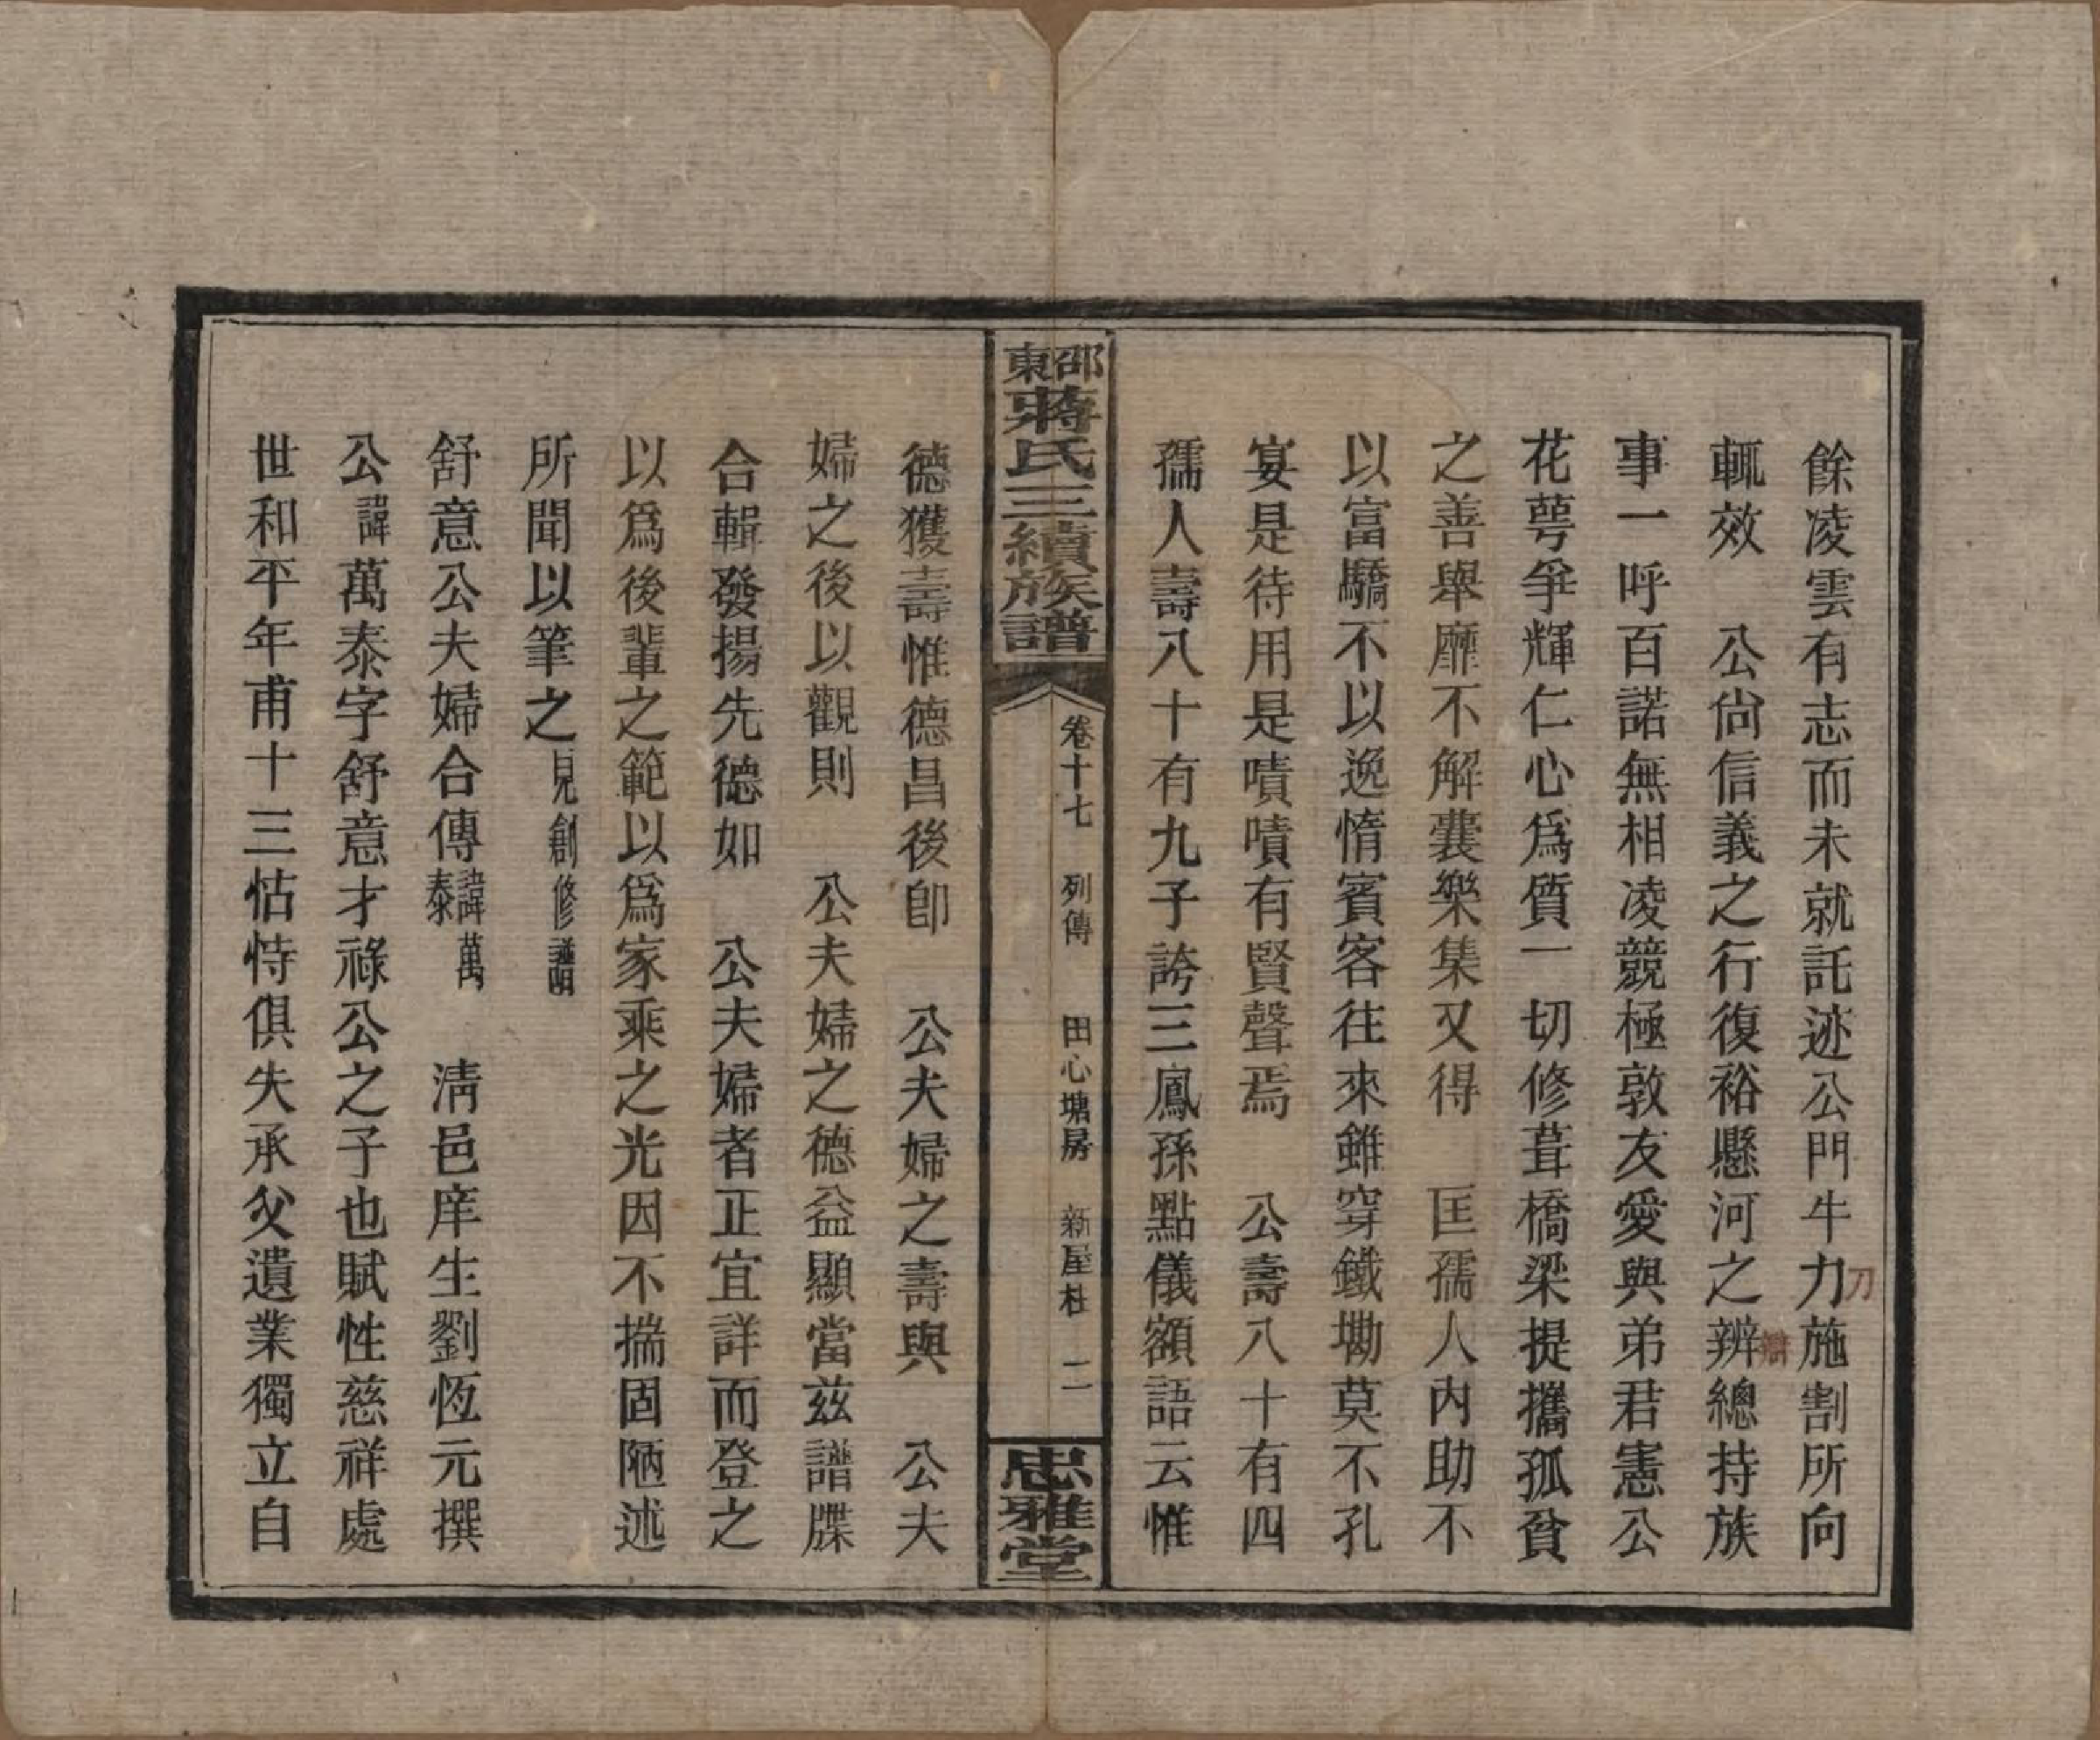 餘凌雲有志而未就託迹公門牛力施割所向
刀
輒效　公尙信義之行復裕懸河之辨總持族
辯
事一呼百諾無相凌競極敦友愛與弟君憲公
花萼爭輝仁心爲質一切修葺橋梁提攜孤貧
之善舉靡不解囊樂集又得　匡孺人內助不
以富驕不以逸惰賓客往來雖穿鐵墈莫不孔
宴是待用是嘖嘖有賢聲焉　公壽八十有四
孺人壽八十有九子誇三鳳孫點儀額語云惟
邵東蔣氏三續族譜
卷十七　列傳　田心塘房　新屋柱　二
忠雅堂
德獲壽惟德昌後卽　公夫婦之壽與　公夫
婦之後以觀則　公夫婦之德益顯當兹譜牒
合輯發揚先德如　公夫婦者正宜詳而登之
以爲後輩之範以爲家乘之光因不揣固陋述
所聞以筆之見創修譜
舒意公夫婦合傳諱萬泰　淸邑庠生劉恆元撰
公諱萬泰字舒意才祿公之子也賦性慈祥處
世和平年甫十三怙恃俱失承父遺業獨立自